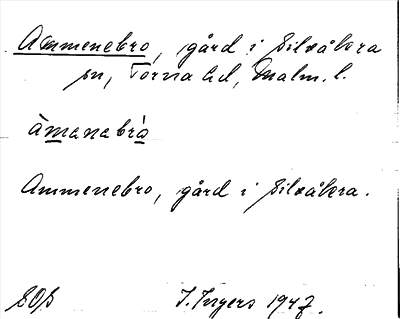 Ammenebro, gård i Silvåkra
sn, Torna hd, Malm. l.
àmanabrò
Ammenebro, gård i Silvåkra.
I. Ingers 1947.